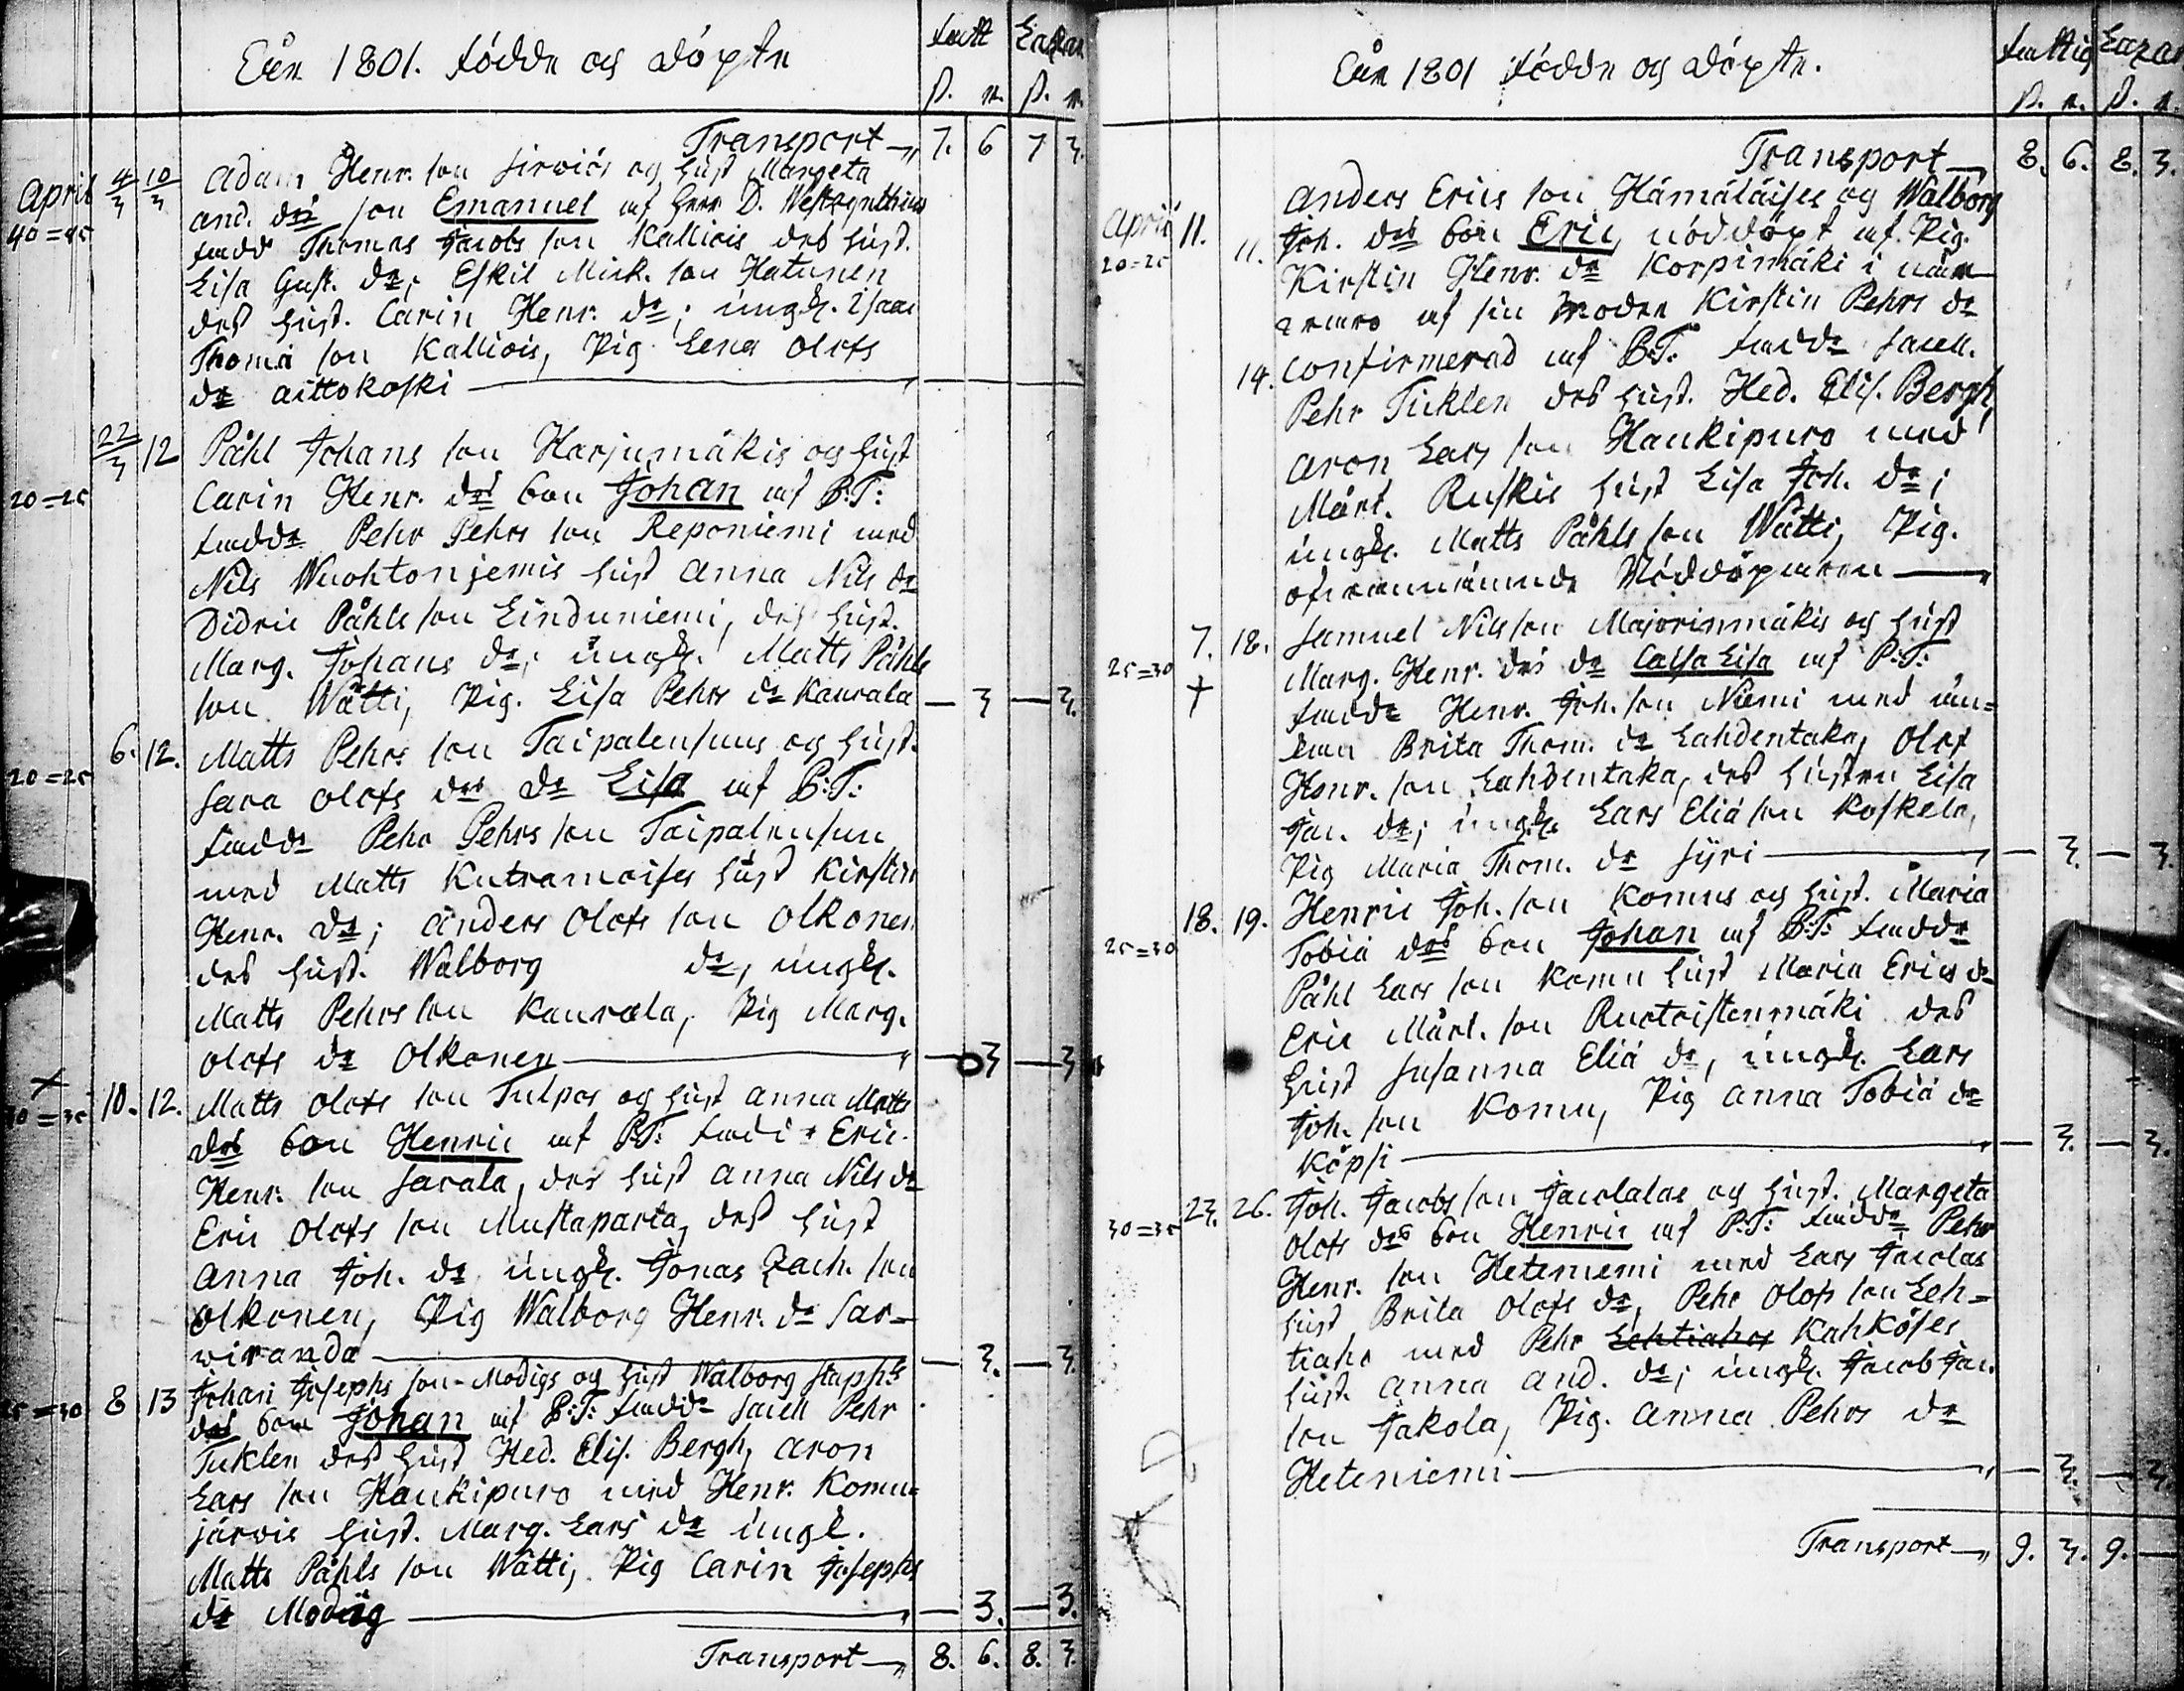 Åhr 1801. födde og döpte
Fatt Lazar
ß. r. ß. r.
Transport 7. 6 7 3.
April 4/3 10/3 Adam Henr. son Sirviös og hust Margeta
40=45 And. drs son Emanuel af Herr D. Wegelius
fadd Thomas Jacobs son Kalliois des hust.
Lisa Gust. dr, Eskil Mick. son Hatunen
des hust. Carin Henr. dr; ungk. Isaac
Thomä son Kalliois, Pig. Lena Olofs
dr Aittokoski
22/3 12 Påhl Johans son Harjumäkis og hust
20=25 Carin Henr. drs son Johan af P:T:
fadde Pehr Pehrs son Reponiemi med
Nils Wuohtonjemis hust Anna Nils dr
Didric Påhls son Linduniemi, des hust.
Marg. Johans dr, ungk. Matts Påhls
son Wätti, Pig. Lisa Pehrs dr Kaurala — 3 — 3.
6. 12. Matts Pehrs son Taipalensuus og hust.
20=25 Sara Olofs drs dr Lisa af P:T:
fadde Pehr Pehrs son Taipalensuu
med Matts Kutramoises hust Kirstin
Henr. dr; Anders Olofs son Olkonen
des hust. Walborg dr, ungk.
Matts Pehrs son Kaurala, Pig Marg.
Olofs dr Olkonen — 3 — 3
+ 10. 12. Matts Olofs son Tulpos og hust Anna Matts
30=35 drs son Henric af P.T: fadde Eric
Henr. son Sarala, des hust Anna Nils dr
Eric Olofs son Mustaparta, des hust
Anna Joh. dr, ungk. Jonas Zach. son
Olkonen, Pig Walborg Henr. dr Sar=
wiranda — 3. — 3.
25=30 8 13 Johan Josephs son Modigs og hust Walborg Staphs
drs son Johan af P:T: fadde Saell Pehr
Tuklen des hust Hed. Elis. Bergh, Aron
Lars son Haukipuro med Henr. Komu=
järvis hust. Marg. Lars dr ungk.
Matts Påhls son Wätti, Pig Carin Josephs
dr Modig — 3. — 3.
Transport 8. 6. 8. 3.
Åhr 1801 födde og döpte.
Fattig Lazar
ß. r. ß. r.
Transport 8. 6. 8. 3.
April 11. Anders Erics son Hämäläises og Walborg
20=25 11. Joh. drs son Eric, nöddöpt af Pig.
Kirstin Henr. dr Korpimäki i när=
varo af sin Moder Kirstin Pehrs dr
14. confirmerad af P:T: fadde Saell.
Pehr Tuklen des hust. Hed. Elis. Bergh,
Aron Lars son Haukipuro med
Mårt. Ruskis hust Lisa Joh. dr;
ungk. Matts Påhls son Wätti, Pig.
ofvannämnde Nöddöparen
7. 18. Samuel Nils son Majorinmäkis og hust
25=30 Marg. Henr. drs dr Caisa Lisa af P:T:
+ fadde Henr. Joh. son Niemi med än=
kan Brita Thom. dr Lahdentaka, Olof
Henr. son Lahdentaka, des hustru Lisa
Jac. dr; ungk. Lars Eliä son Koskela,
Pig Maria Thom. dr Syri — 3. — 3.
18. 19. Henric Joh. son Komus og hust. Maria
25=30 Tobiä drs son Johan af P:T: fadde
Påhl Lars son Komu hust Maria Erics dr
Eric Mårt. son Ruotoistenmäki des
hust Susanna Eliä dr, ungk. Lars
Joh. son Komu, Pig Anna Tobiä dr
Köpsi — 3. — 3.
30=35 23. 26. Joh. Jacobs son Jacolalas og hust. Margeta
Olofs drs son Henric af P:T: fadde Pehr
Henr. son Heteniemi med Lars Jacolas
hust Brita Olofs dr, Pehr Olofs son Leh=
tiaho med Pehr Lehtiahos Kahköses
hust. Anna And. dr; ungk. Jacob Jac.
son Jakola, Pig. Anna Pehrs dr
Heteniemi — 3. — 3.
Transport 9. 3. 9. —